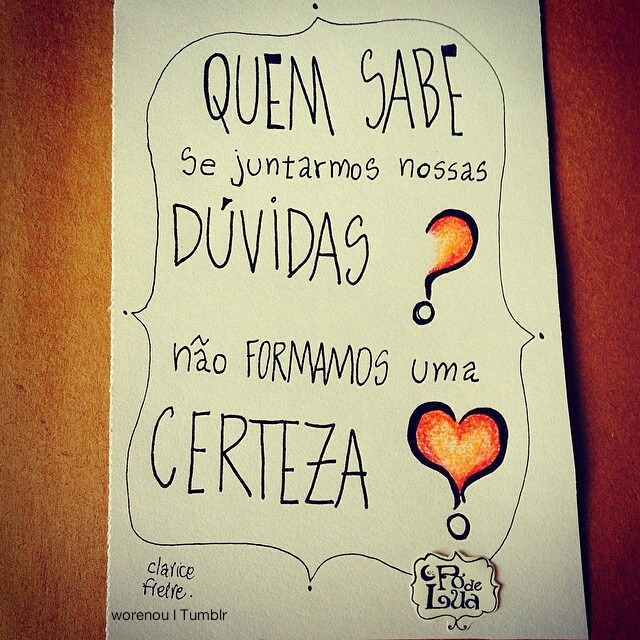 QUEM SABE
Se juntarmos nossas
DÚVIDAS ?
não FORMAMOS uma
CERTEZA
clarice
freire.
Pó de
Lua
worenou | Tumblr